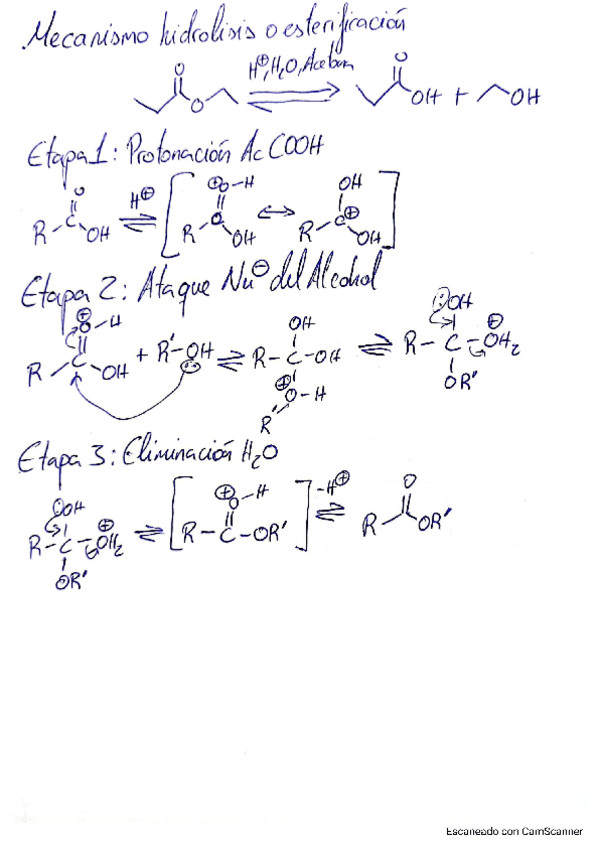 Mecanismo hidrolisis o esterificación
H⊕, H2O, Aceton
O
O
O
OH + OH
Etapa 1: Protonación Ac COOH
O
R-C OH H⊕ [ ⊕O-H R C OH ↔ OH R-C⊕ OH ]
Etapa 2: Ataque Nu⊖ del Alcohol
⊕O-H
R C OH + R'-OH ⇌ R-C-OH OH ⊕O-H R' ⇌ R-C-OH2 ⊕ OH OR'
Etapa 3: Eliminación H2O
OH
R-C-OH2 ⊕ OR' ⇌ [ ⊕O-H R-C-OR' ] -H⊕ ⇌ O R OR'
Escaneado con CamScanner